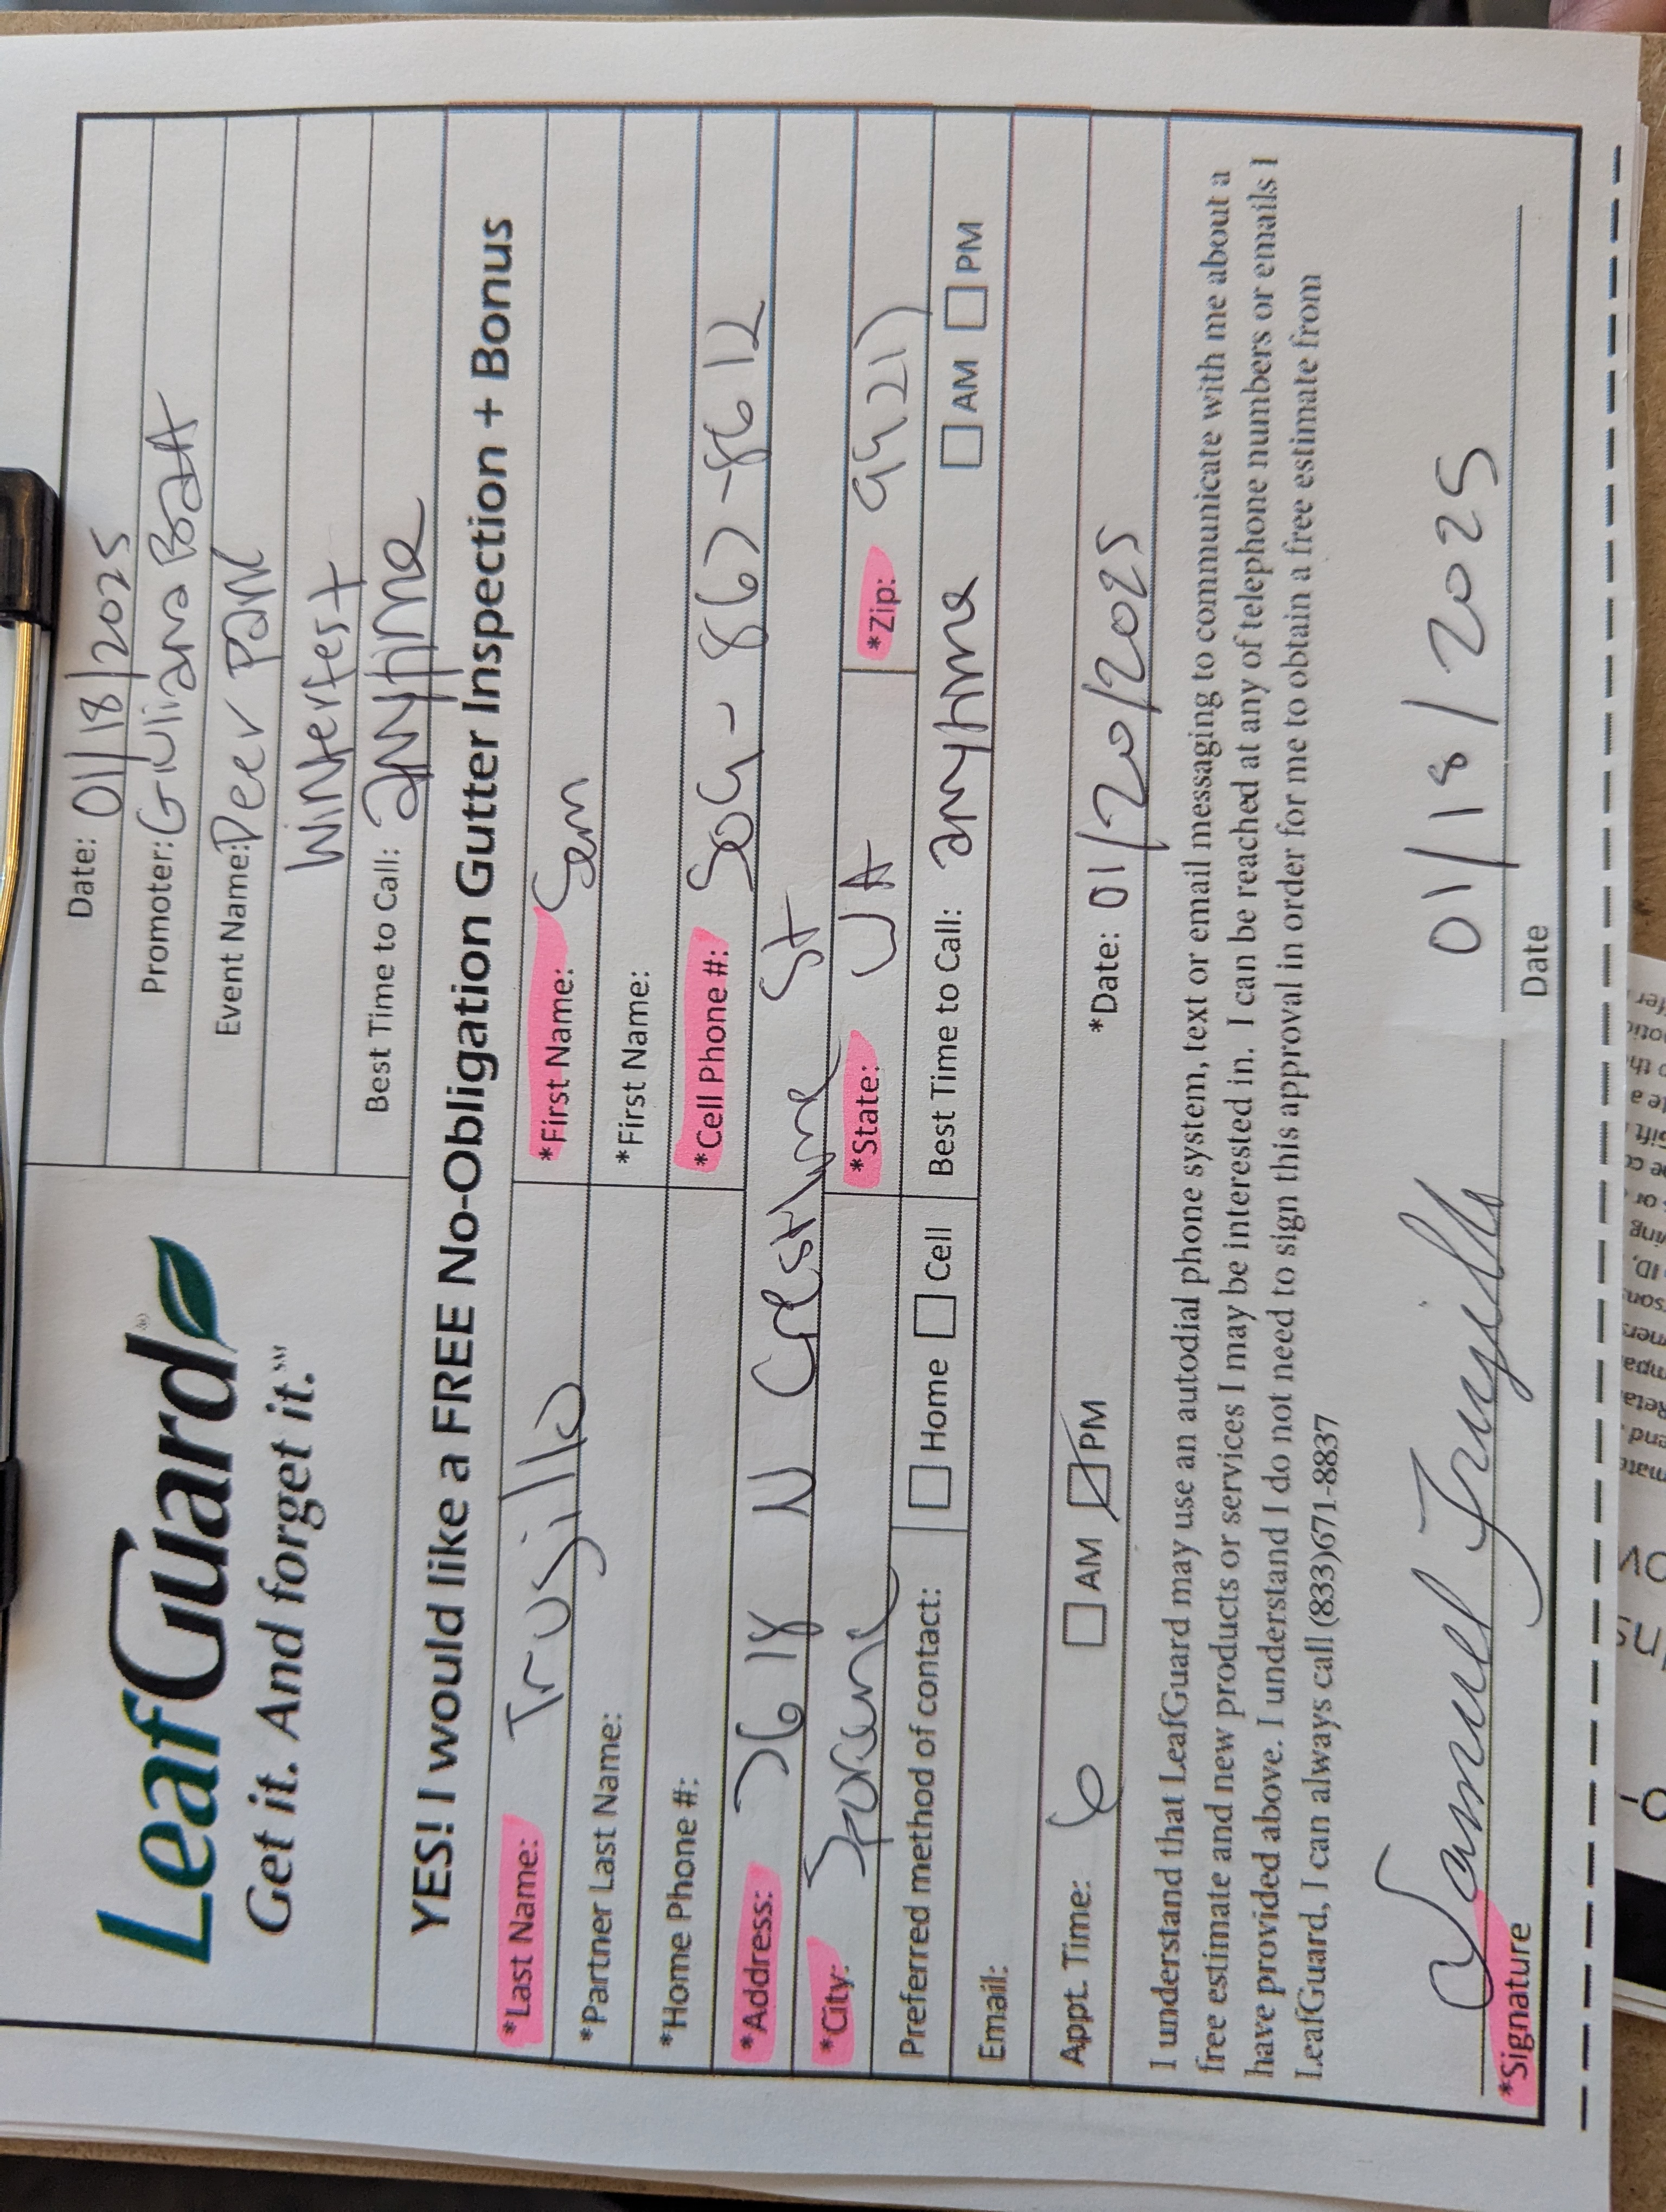 LeafGuard®
Get it. And forget it.℠
Date: 01/18/2025
Promoter: Giuliana Boatt
Event Name: Deer Park
Winterfest
Best Time to Call: anytime
YES! I would like a FREE No-Obligation Gutter Inspection + Bonus
*Last Name: Trujillo *First Name: Sam
*Partner Last Name: *First Name:
*Home Phone #: *Cell Phone #: 509-867-8612
*Address: 7618 N Crestline St
*City: Spokane *State: WA *Zip: 99217
Preferred method of contact: Home Cell Best Time to Call: anytime AM PM
Email:
Appt. Time: 6 AM PM *Date: 01/20/2025
I understand that LeafGuard may use an autodial phone system, text or email messaging to communicate with me about a
free estimate and new products or services I may be interested in. I can be reached at any of telephone numbers or emails I
have provided above. I understand I do not need to sign this approval in order for me to obtain a free estimate from
LeafGuard, I can always call (833)671-8837
Samuel Trujillo 01/18/2025
*Signature Date